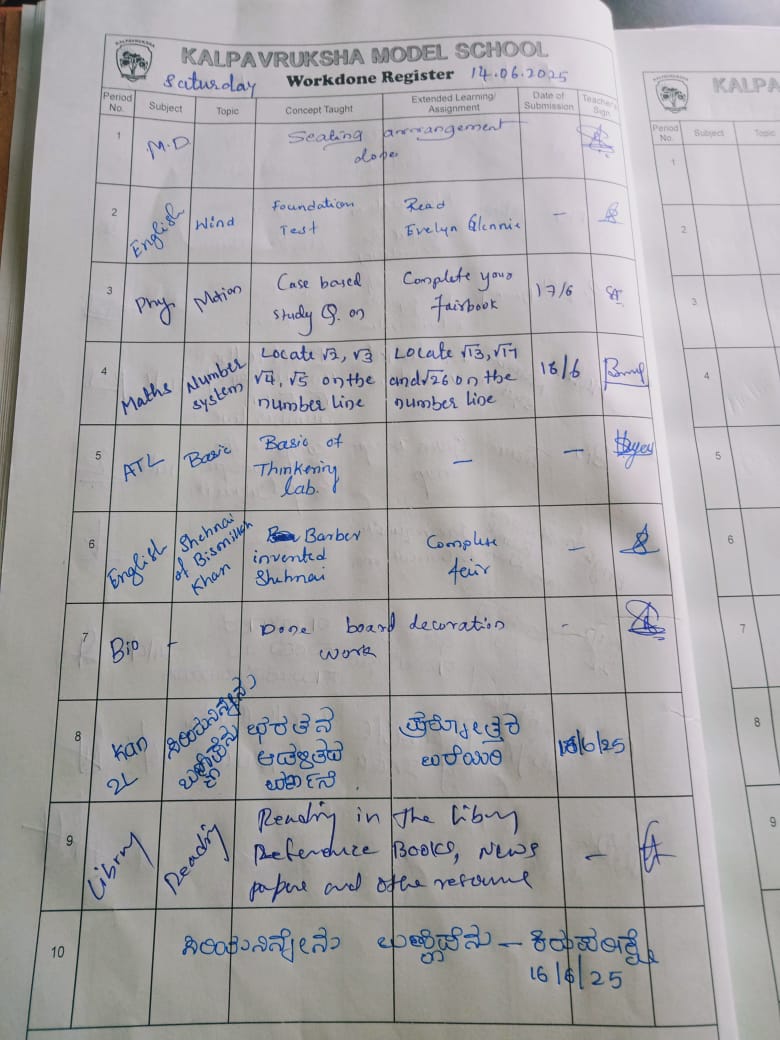 KALPAVRUKSHA MODEL SCHOOL
Saturday Workdone Register 14.06.2025
Period No. Subject Topic Concept Taught Extended Learning/ Assignment Date of Submission Teacher's Sign.
1 M.D Seating arrrangement
done
2 English Wind Foundation Test Read Evelyn Glennie -
3 Phy. Motion Case based study Q. on Complete your Fairbook 17/6
4 Maths Number system Locate √2, √3 √4, √5 on the number line Locate √13, √17 and √26 on the number line 16/6
5 ATL Basic Basic of Thinkering lab. — —
6 English Shehnai of Bismillah Khan Barber invented Shehnai Complete feir -
7 Bio - Done board decoration work -
8 Kan 2L ಸಿರಿಯನಿನ್ನೇನ ಬಣ್ಣಿಪೆನು ಭರತನ ಆಡಳಿತದ ವರ್ಣನೆ . ಪ್ರಶ್ನೋತ್ತರ ಬರೆಯಿರಿ 16/6/25
9 Library Reading Reading in the library Reference Books, News papers and other resource -
10 ಸಿರಿಯನಿನ್ನೇನ ಬಣ್ಣಿಪೆನು - ಕಿರುಪರೀಕ್ಷೆ
16/6/25
KALPA
Period No. Subject Topic
1
2
3
4
5
6
7
8
9